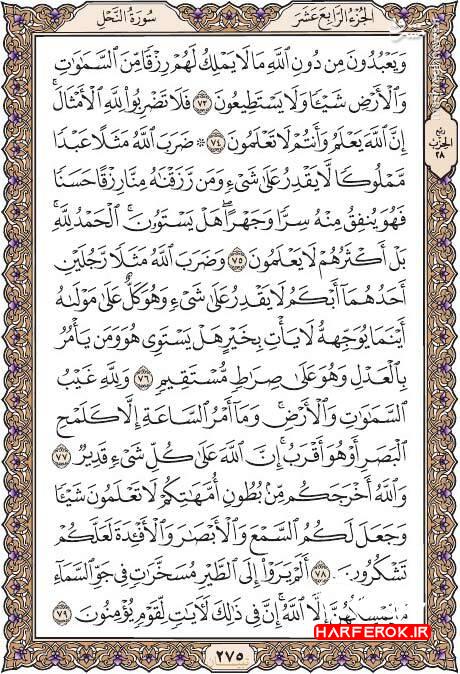 سُورَةُ النَّحْلِ
الجُزءُ الرَّابِعَ عَشَرَ
وَيَعْبُدُونَ مِن دُونِ اللَّهِ مَا لَا يَمْلِكُ لَهُمْ رِزْقًا مِّنَ السَّمَٰوَٰتِ
وَالْأَرْضِ شَيْـًٔا وَلَا يَسْتَطِيعُونَ ٧٣ فَلَا تَضْرِبُوا لِلَّهِ الْأَمْثَالَ ۚ
إِنَّ اللَّهَ يَعْلَمُ وَأَنتُمْ لَا تَعْلَمُونَ ٧٤ ۞ ضَرَبَ اللَّهُ مَثَلًا عَبْدًا
مَّمْلُوكًا لَّا يَقْدِرُ عَلَىٰ شَيْءٍ وَمَن رَّزَقْنَٰهُ مِنَّا رِزْقًا حَسَنًا
فَهُوَ يُنفِقُ مِنْهُ سِرًّا وَجَهْرًا ۖ هَلْ يَسْتَوُونَ ۚ الْحَمْدُ لِلَّهِ ۚ
بَلْ أَكْثَرُهُمْ لَا يَعْلَمُونَ ٧٥ وَضَرَبَ اللَّهُ مَثَلًا رَّجُلَيْنِ
أَحَدُهُمَا أَبْكَمُ لَا يَقْدِرُ عَلَىٰ شَيْءٍ وَهُوَ كَلٌّ عَلَىٰ مَوْلَىٰهُ
أَيْنَمَا يُوَجِّههُّ لَا يَأْتِ بِخَيْرٍ هَلْ يَسْتَوِي هُوَ وَمَن يَأْمُرُ
بِالْعَدْلِ وَهُوَ عَلَىٰ صِرَٰطٍ مُّسْتَقِيمٍ ٧٦ وَلِلَّهِ غَيْبُ
السَّمَٰوَٰتِ وَالْأَرْضِ ۚ وَمَا أَمْرُ السَّاعَةِ إِلَّا كَلَمْحِ
الْبَصَرِ أَوْ هُوَ أَقْرَبُ ۚ إِنَّ اللَّهَ عَلَىٰ كُلِّ شَيْءٍ قَدِيرٌ ٧٧
وَاللَّهُ أَخْرَجَكُم مِّن بُطُونِ أُمَّهَٰتِكُمْ لَا تَعْلَمُونَ شَيْـًٔا
وَجَعَلَ لَكُمُ السَّمْعَ وَالْأَبْصَٰرَ وَالْأَفْـِٔدَةَ لَعَلَّكُمْ
تَشْكُرُونَ ٧٨ أَلَمْ يَرَوْا إِلَى الطَّيْرِ مُسَخَّرَٰتٍ فِي جَوِّ السَّمَاءِ
مَا يُمْسِكُهُنَّ إِلَّا اللَّهُ ۗ إِنَّ فِي ذَٰلِكَ لَآيَٰتٍ لِّقَوْمٍ يُؤْمِنُونَ ٧٩
ربع
الحزب
٢٨
٢٧٥
HARFEROK.IR